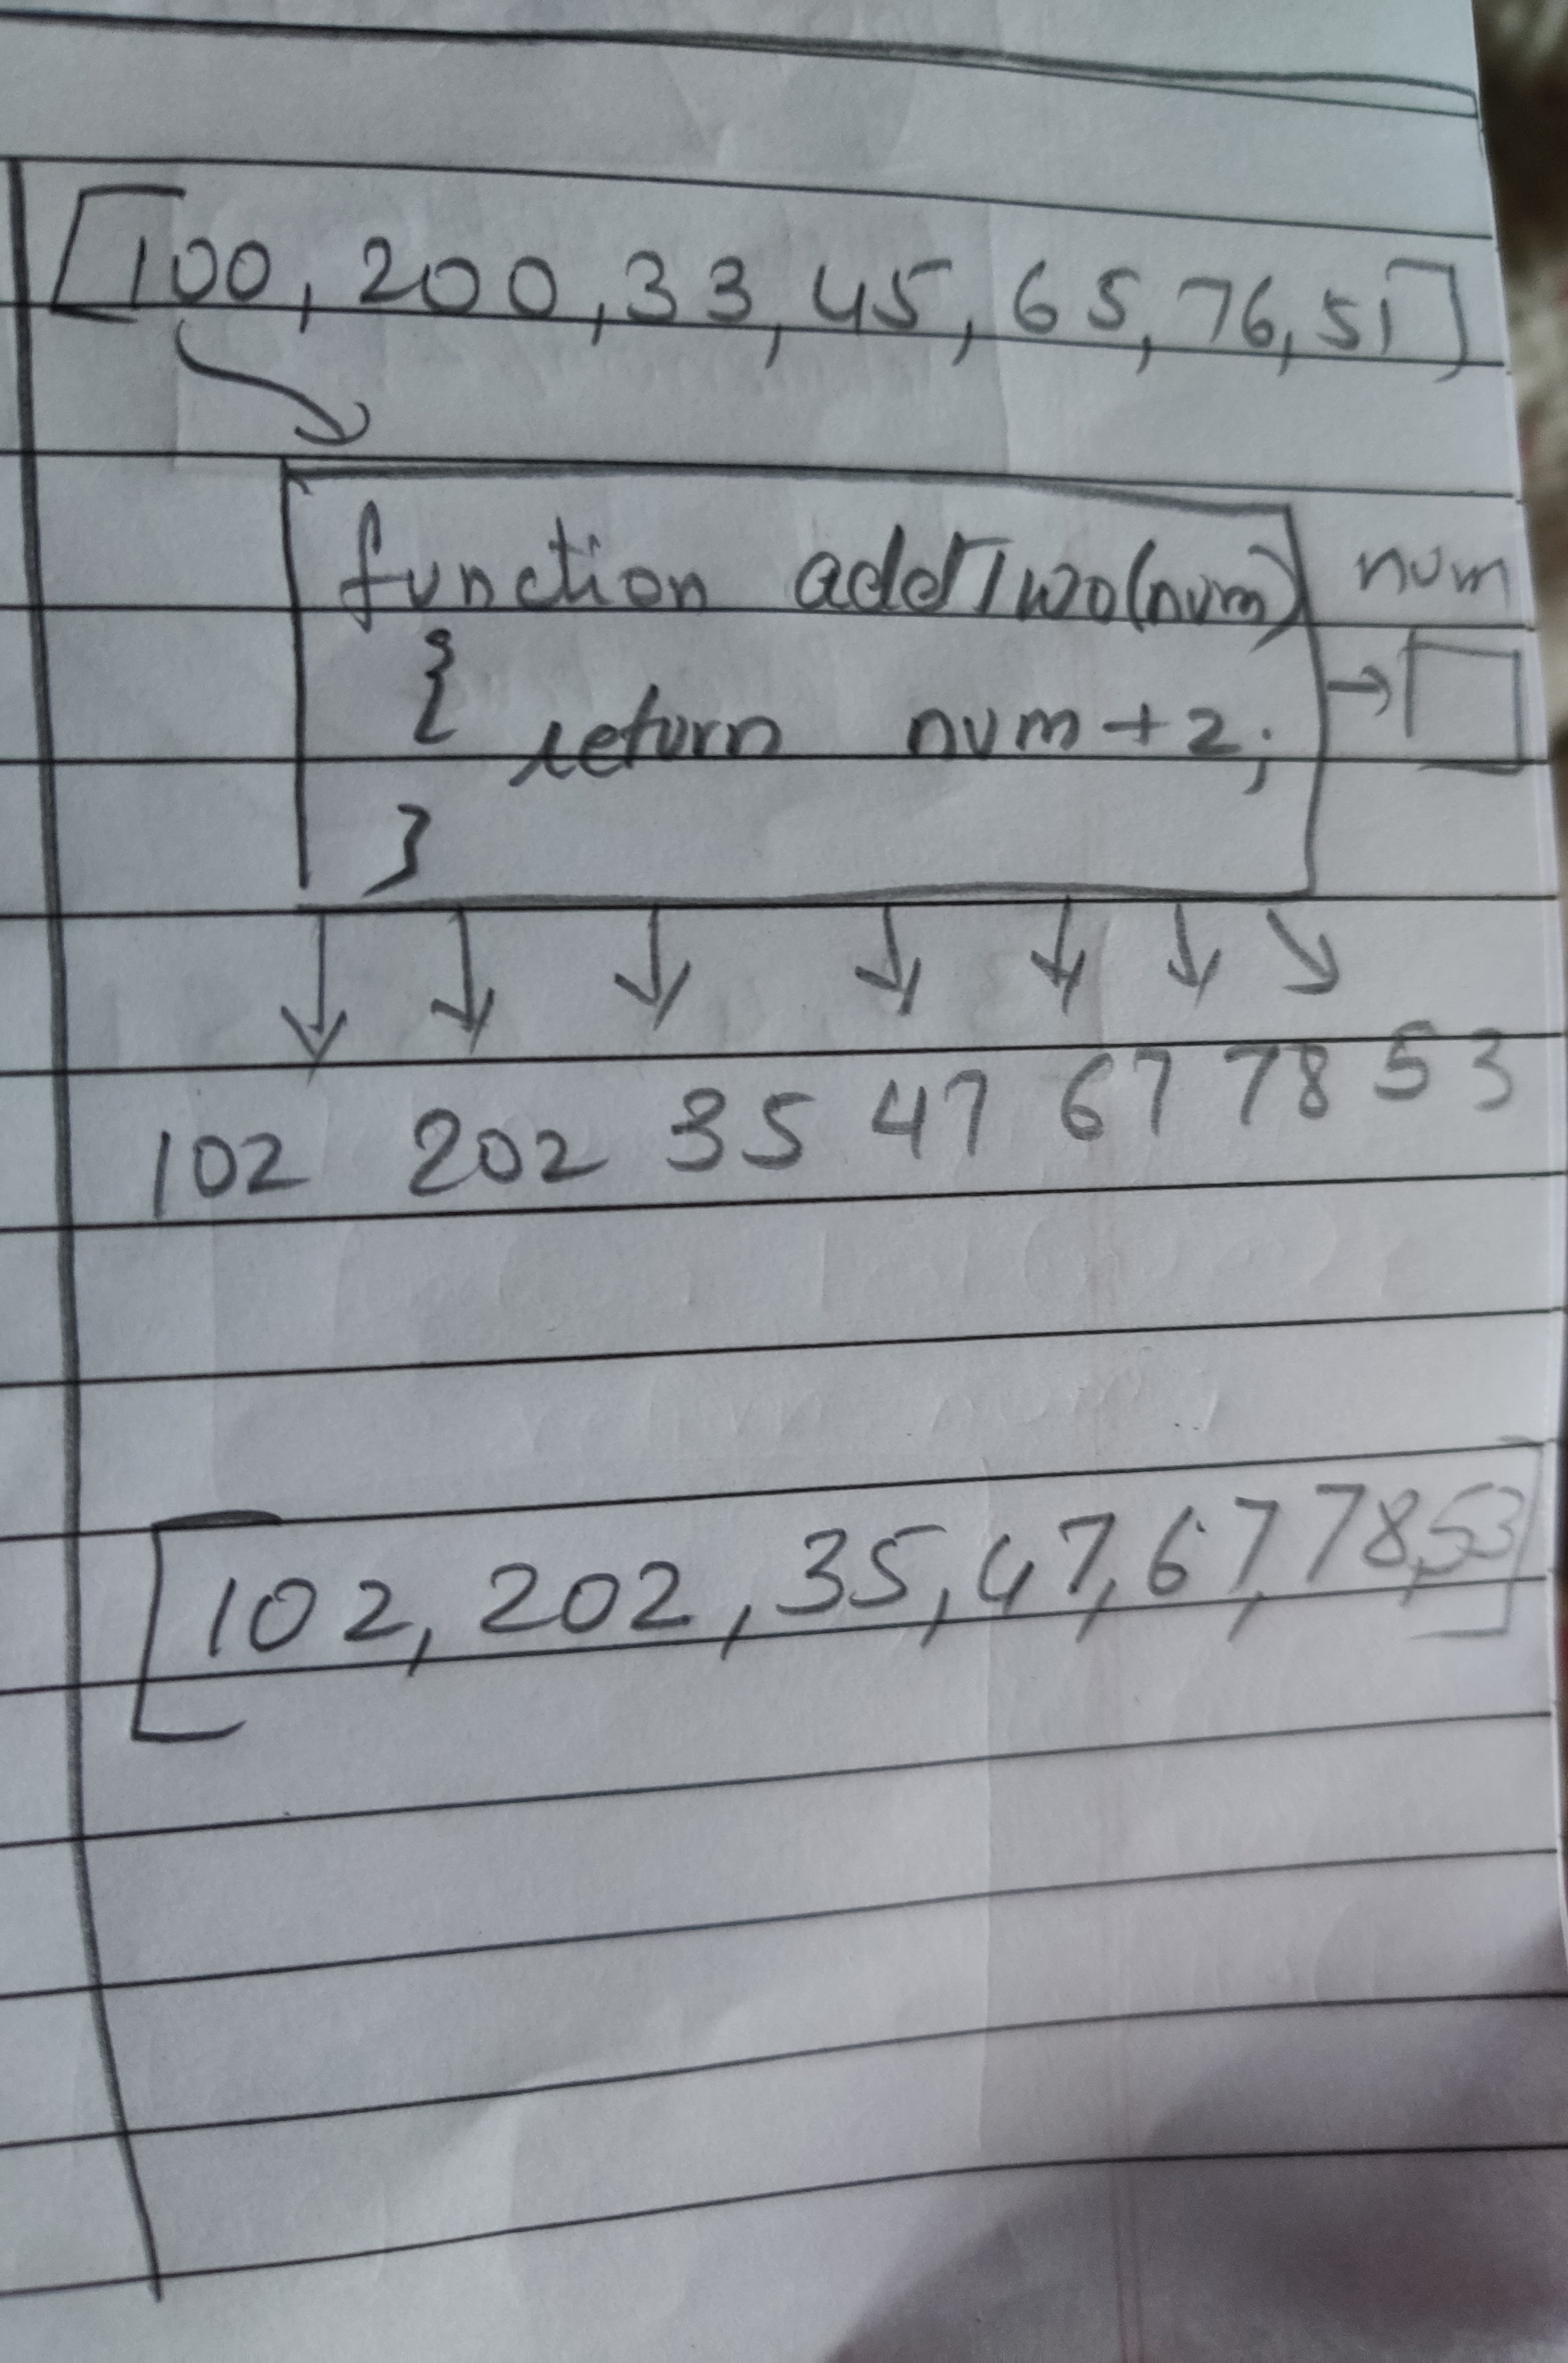 [100, 200, 33, 45, 65, 76, 51]
function addTwo(num)
num
{
return num + 2;
}
102 202 35 47 67 78 53
[102, 202, 35, 47, 67, 78, 53]